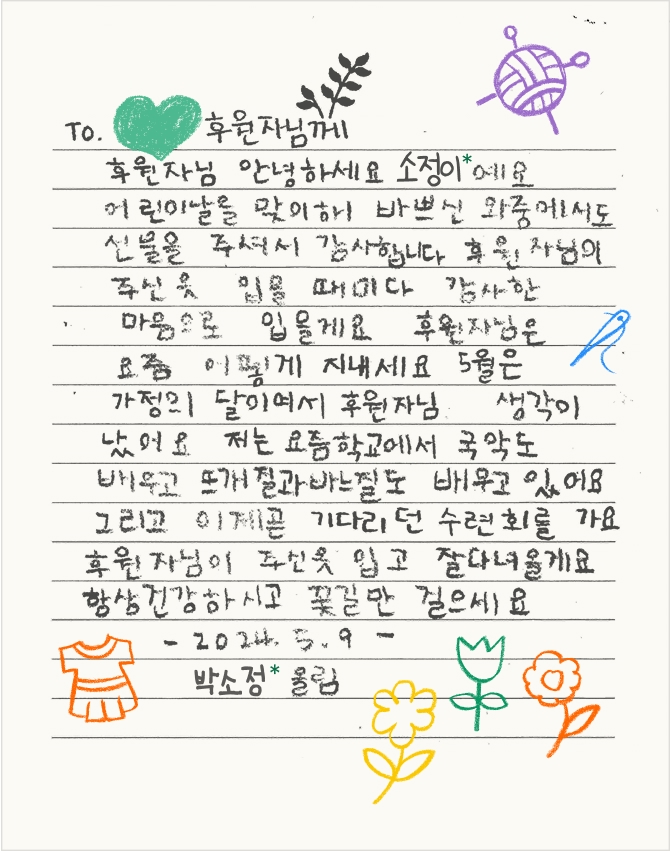 To. 후원자님께
후원자님 안녕하세요 소정이*예요
어린이날을 맞이해 바쁘신 와중에서도
선물을 주셔서 감사합니다 후원자님의
주신 옷 입을 때마다 감사한
마음으로 입을게요 후원자님은
요즘 어떻게 지내세요 5월은
가정의 달이여서 후원자님 생각이
났어요 저는 요즘학교에서 국악도
배우고 뜨개질과바느질도 배우고 있어요
그리고 이제곧 기다리던 수련회를 가요
후원자님이 주신옷 입고 잘다녀올게요
항상건강하시고 꽃길만 걸으세요
- 2024. 5. 9 -
박소정* 올림